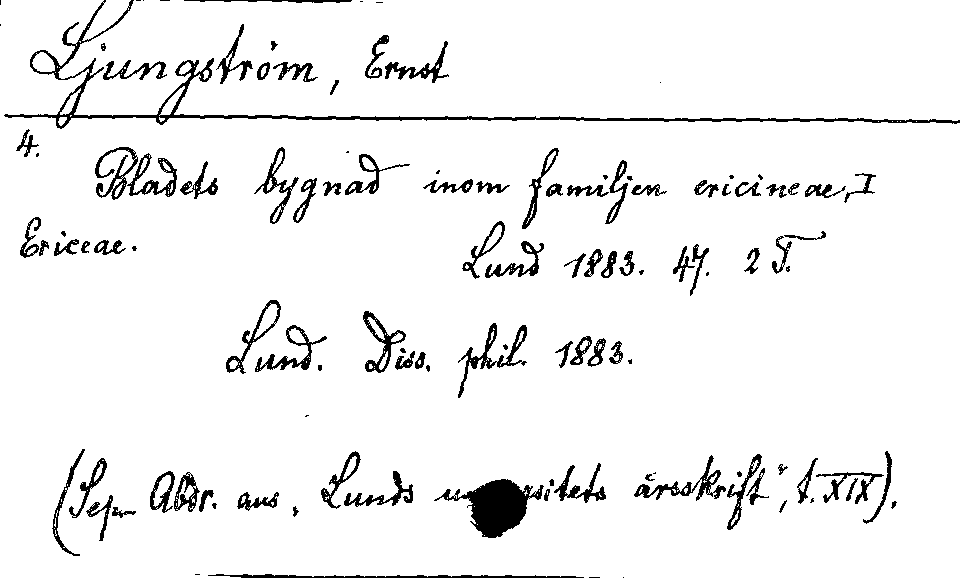 Ljungström, Ernst
4.
Bladets bygnad inom familjen ericineae, I
Ericeae.
Lund 1883. 47. 2 T.
Lund. Diss. phil. 1883.
(Sep. Abdr. aus „Lunds universitets årsskrift", t. XIX).